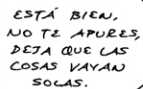 ESTÁ BIEN,
NO TE APURES,
DEJA QUE LAS
COSAS VAYAN
SOLAS.